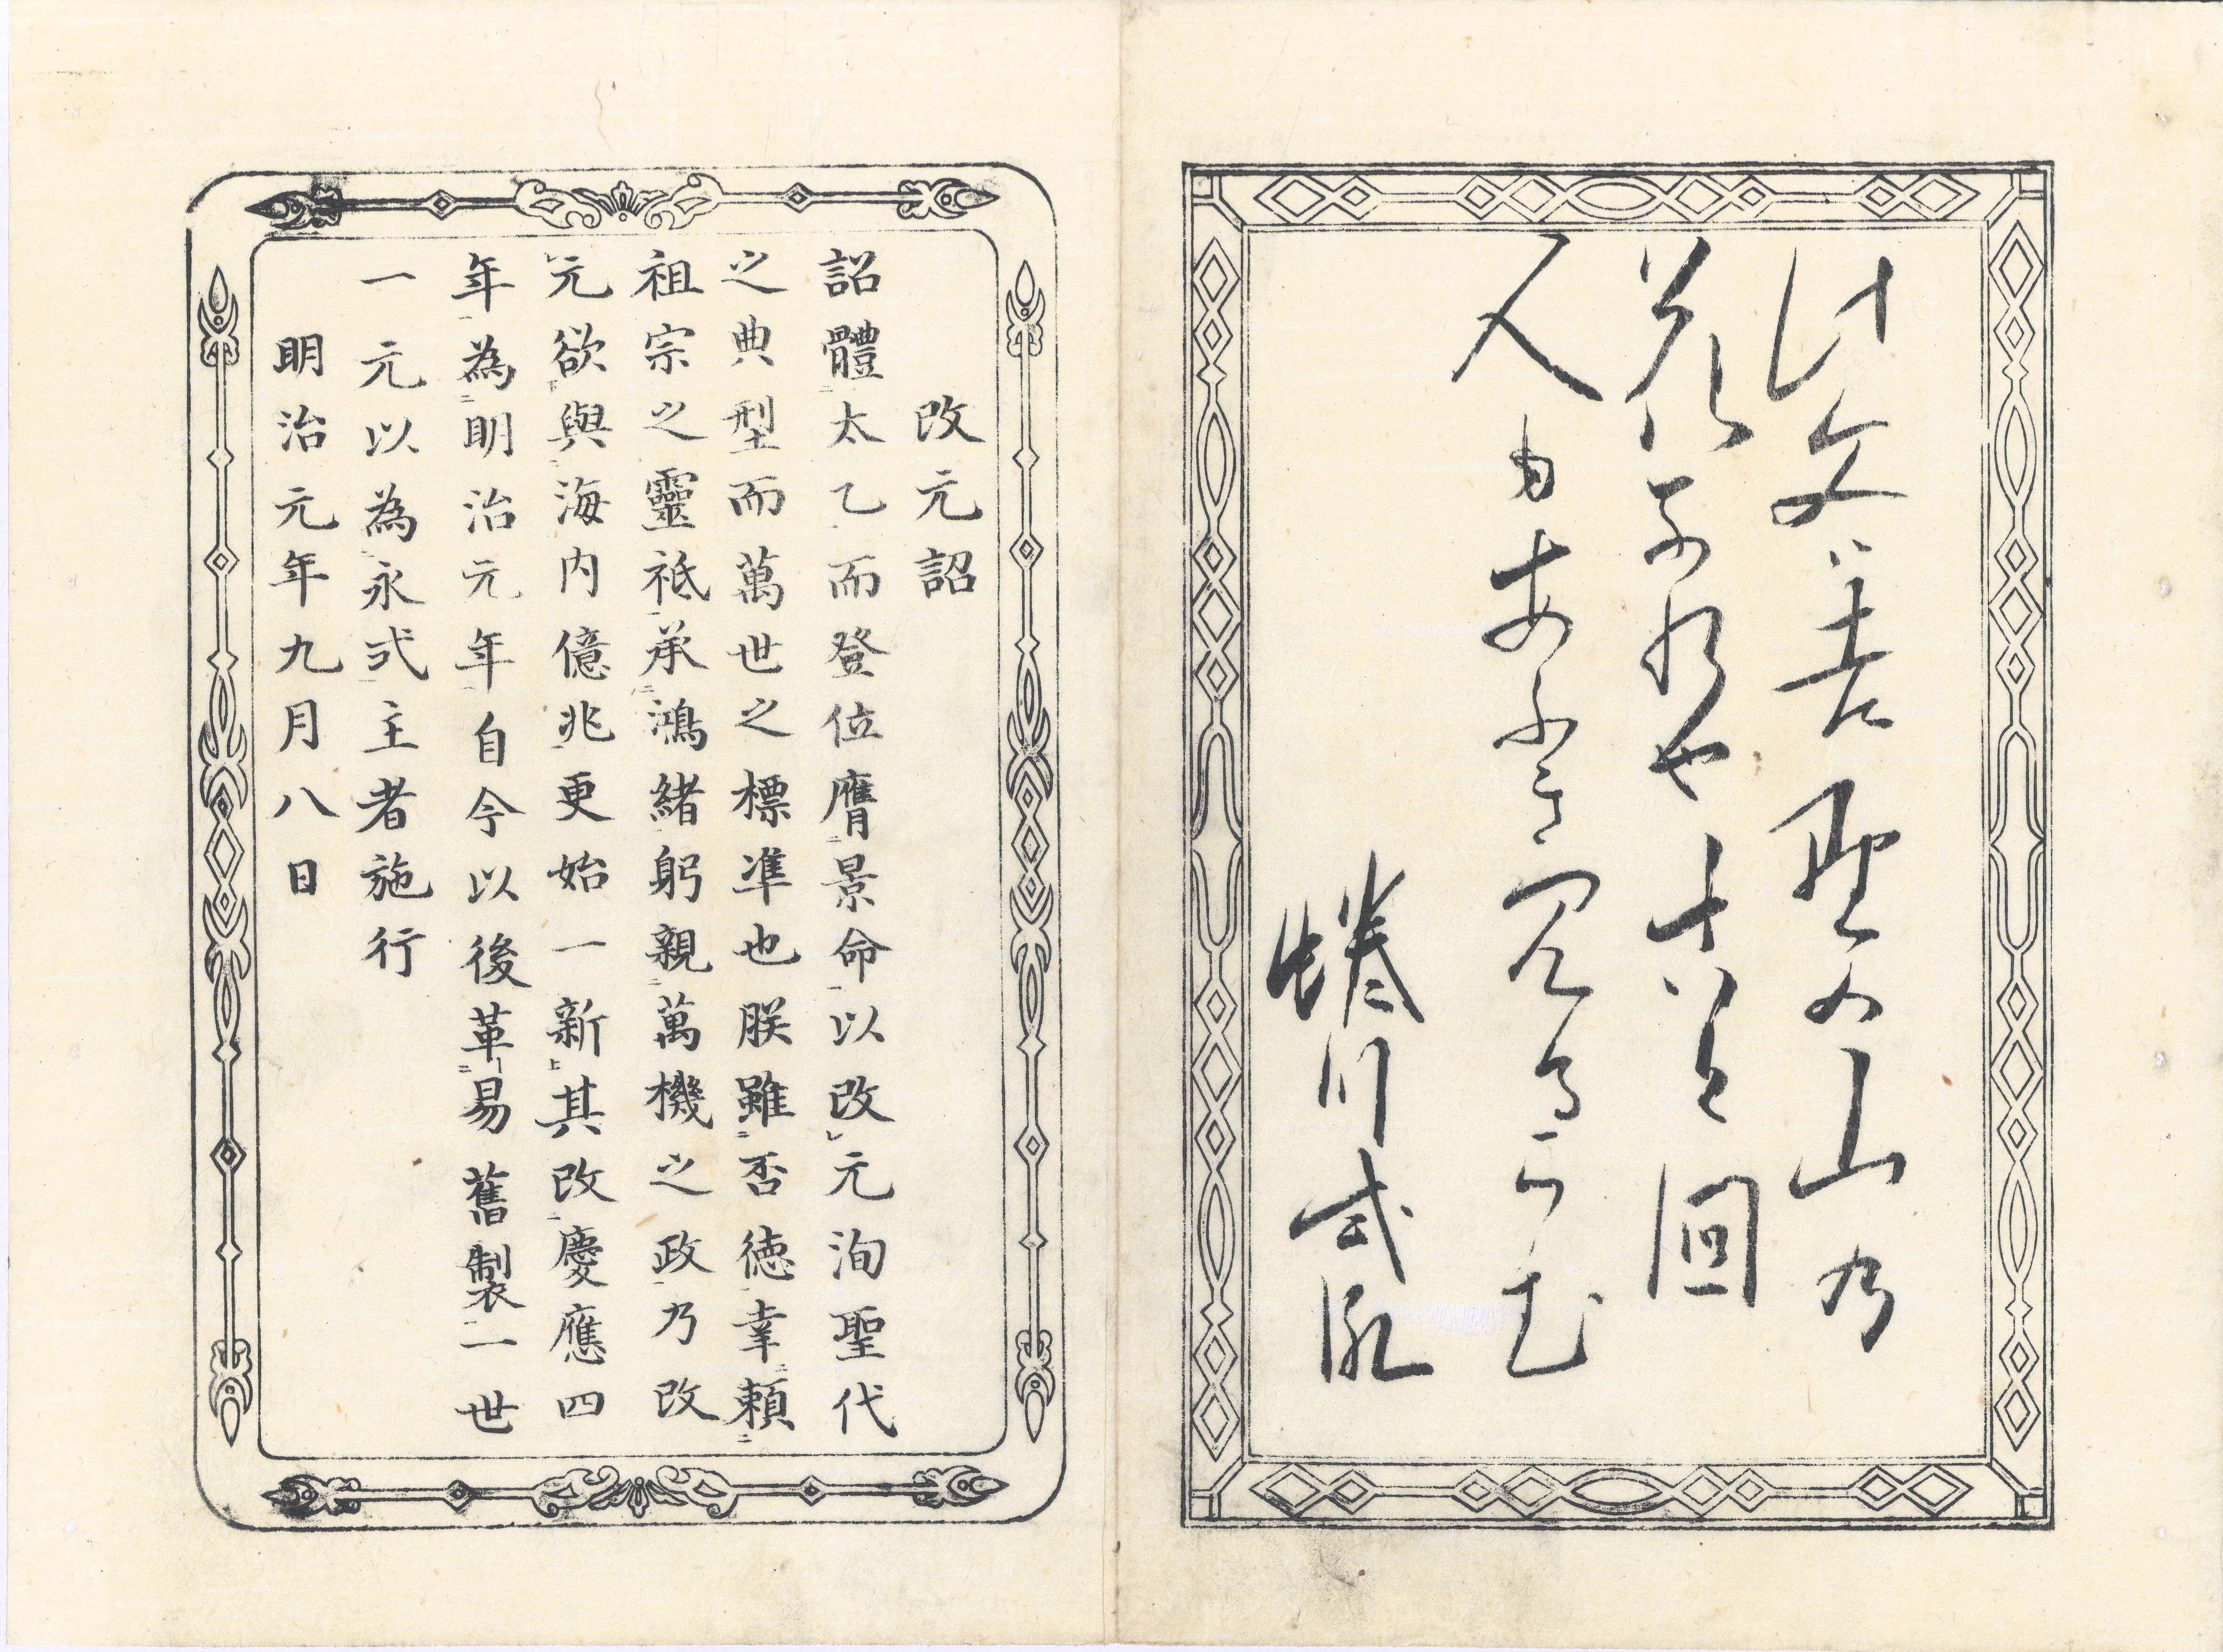 此文ハ吉野の山乃
花
人
蜷川式胤
改元詔
詔體太乙而登位膺景命以改元洵聖代
之典型而萬世之標凖也朕雖否徳幸頼
祖宗之靈祗承鴻緒躬親萬機之政乃改
元欲與海内億兆更始一新其改慶應四
年為明治元年自今以後革易舊製一世
一元以為永式主者施行
明治元年九月八日